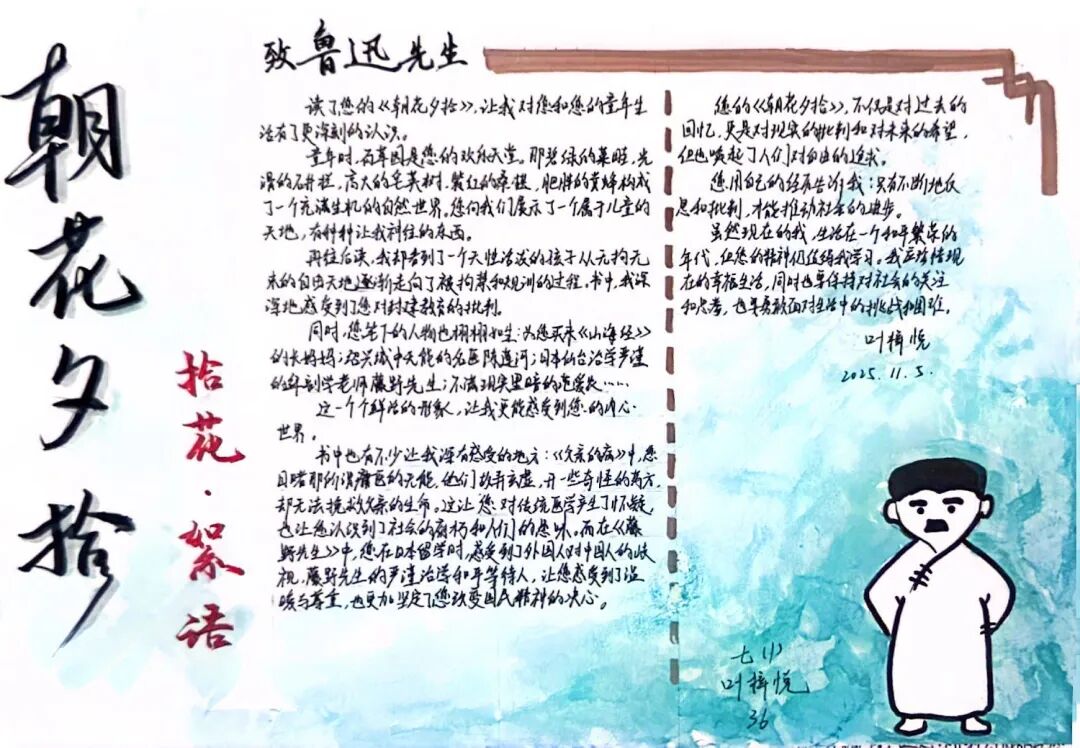 朝花夕拾
拾花·絮语
致鲁迅先生
读了您的《朝花夕拾》,让我对您和您的童年生
活有了更深刻的认识。
童年时,百草园是您的欢乐天堂。那碧绿的菜畦,光
滑的石井栏,高大的皂荚树,紫红的桑椹,肥胖的黄蜂构成
了一个充满生机的自然世界。您向我们展示了一个属于儿童的
天地,有种种让我神往的东西。
再往后读,我却看到了一个天性活泼的孩子从无拘无
束的自由天地逐渐走向了被拘禁和规训的过程。书中,我深
深地感受到了您对封建教育的批判。
同时,您笔下的人物也栩栩如生:为您买来《山海经》
的长妈妈;绍兴城中无能的名医陈莲河;日本仙台治学严谨
的解剖学老师藤野先生;不满现实黑暗的范爱农……
这一个个鲜活的形象,让我更能感受到您的内心
世界。
书中也有不少让我深有感受的地方:《父亲的病》中,您
目睹那些庸医的无能,他们故弄玄虚,开一些奇怪的药方,
却无法挽救父亲的生命。这让您对传统医学产生了怀疑,
也让您认识到了社会的腐朽和人们的愚昧。而在《藤
野先生》中,您在日本留学时,感受到了外国人对中国人的歧
视,藤野先生的严谨治学和平等待人,让您感受到了温
暖与尊重,也更加坚定了您改变国民精神的决心。
您的《朝花夕拾》,不仅是对过去的
回忆,更是对现实的批判和对未来的希望,
但也唤起了人们对自由的追求。
您用自己的经历告诉我:只有不断地反
思和批判,才能推动社会的进步。
虽然现在的我,生活在一个和平繁荣的
年代,但您的精神仍值得我学习。我应珍惜现
在的幸福生活,同时也要保持对社会的关注
和思考,也要勇敢面对生活中的挑战和困难。
叶梓悦
2025.11.5.
七(1)
叶梓悦
36